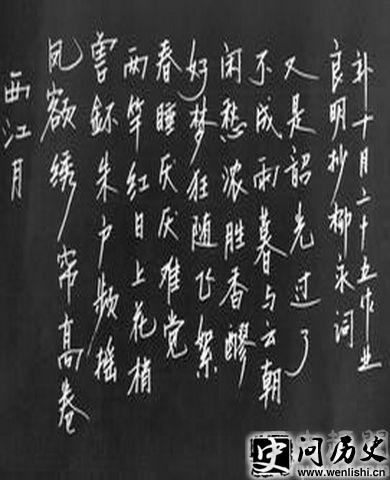 西江月
凤额绣帘高卷
兽环朱户频摇
两竿红日上花梢
春睡厌厌难觉
好梦狂随飞絮
闲愁浓胜香醪
不成雨暮与云朝
又是韶光过了
良明抄柳永词
补十月二十五作业
史问历史
www.wenlishi.com